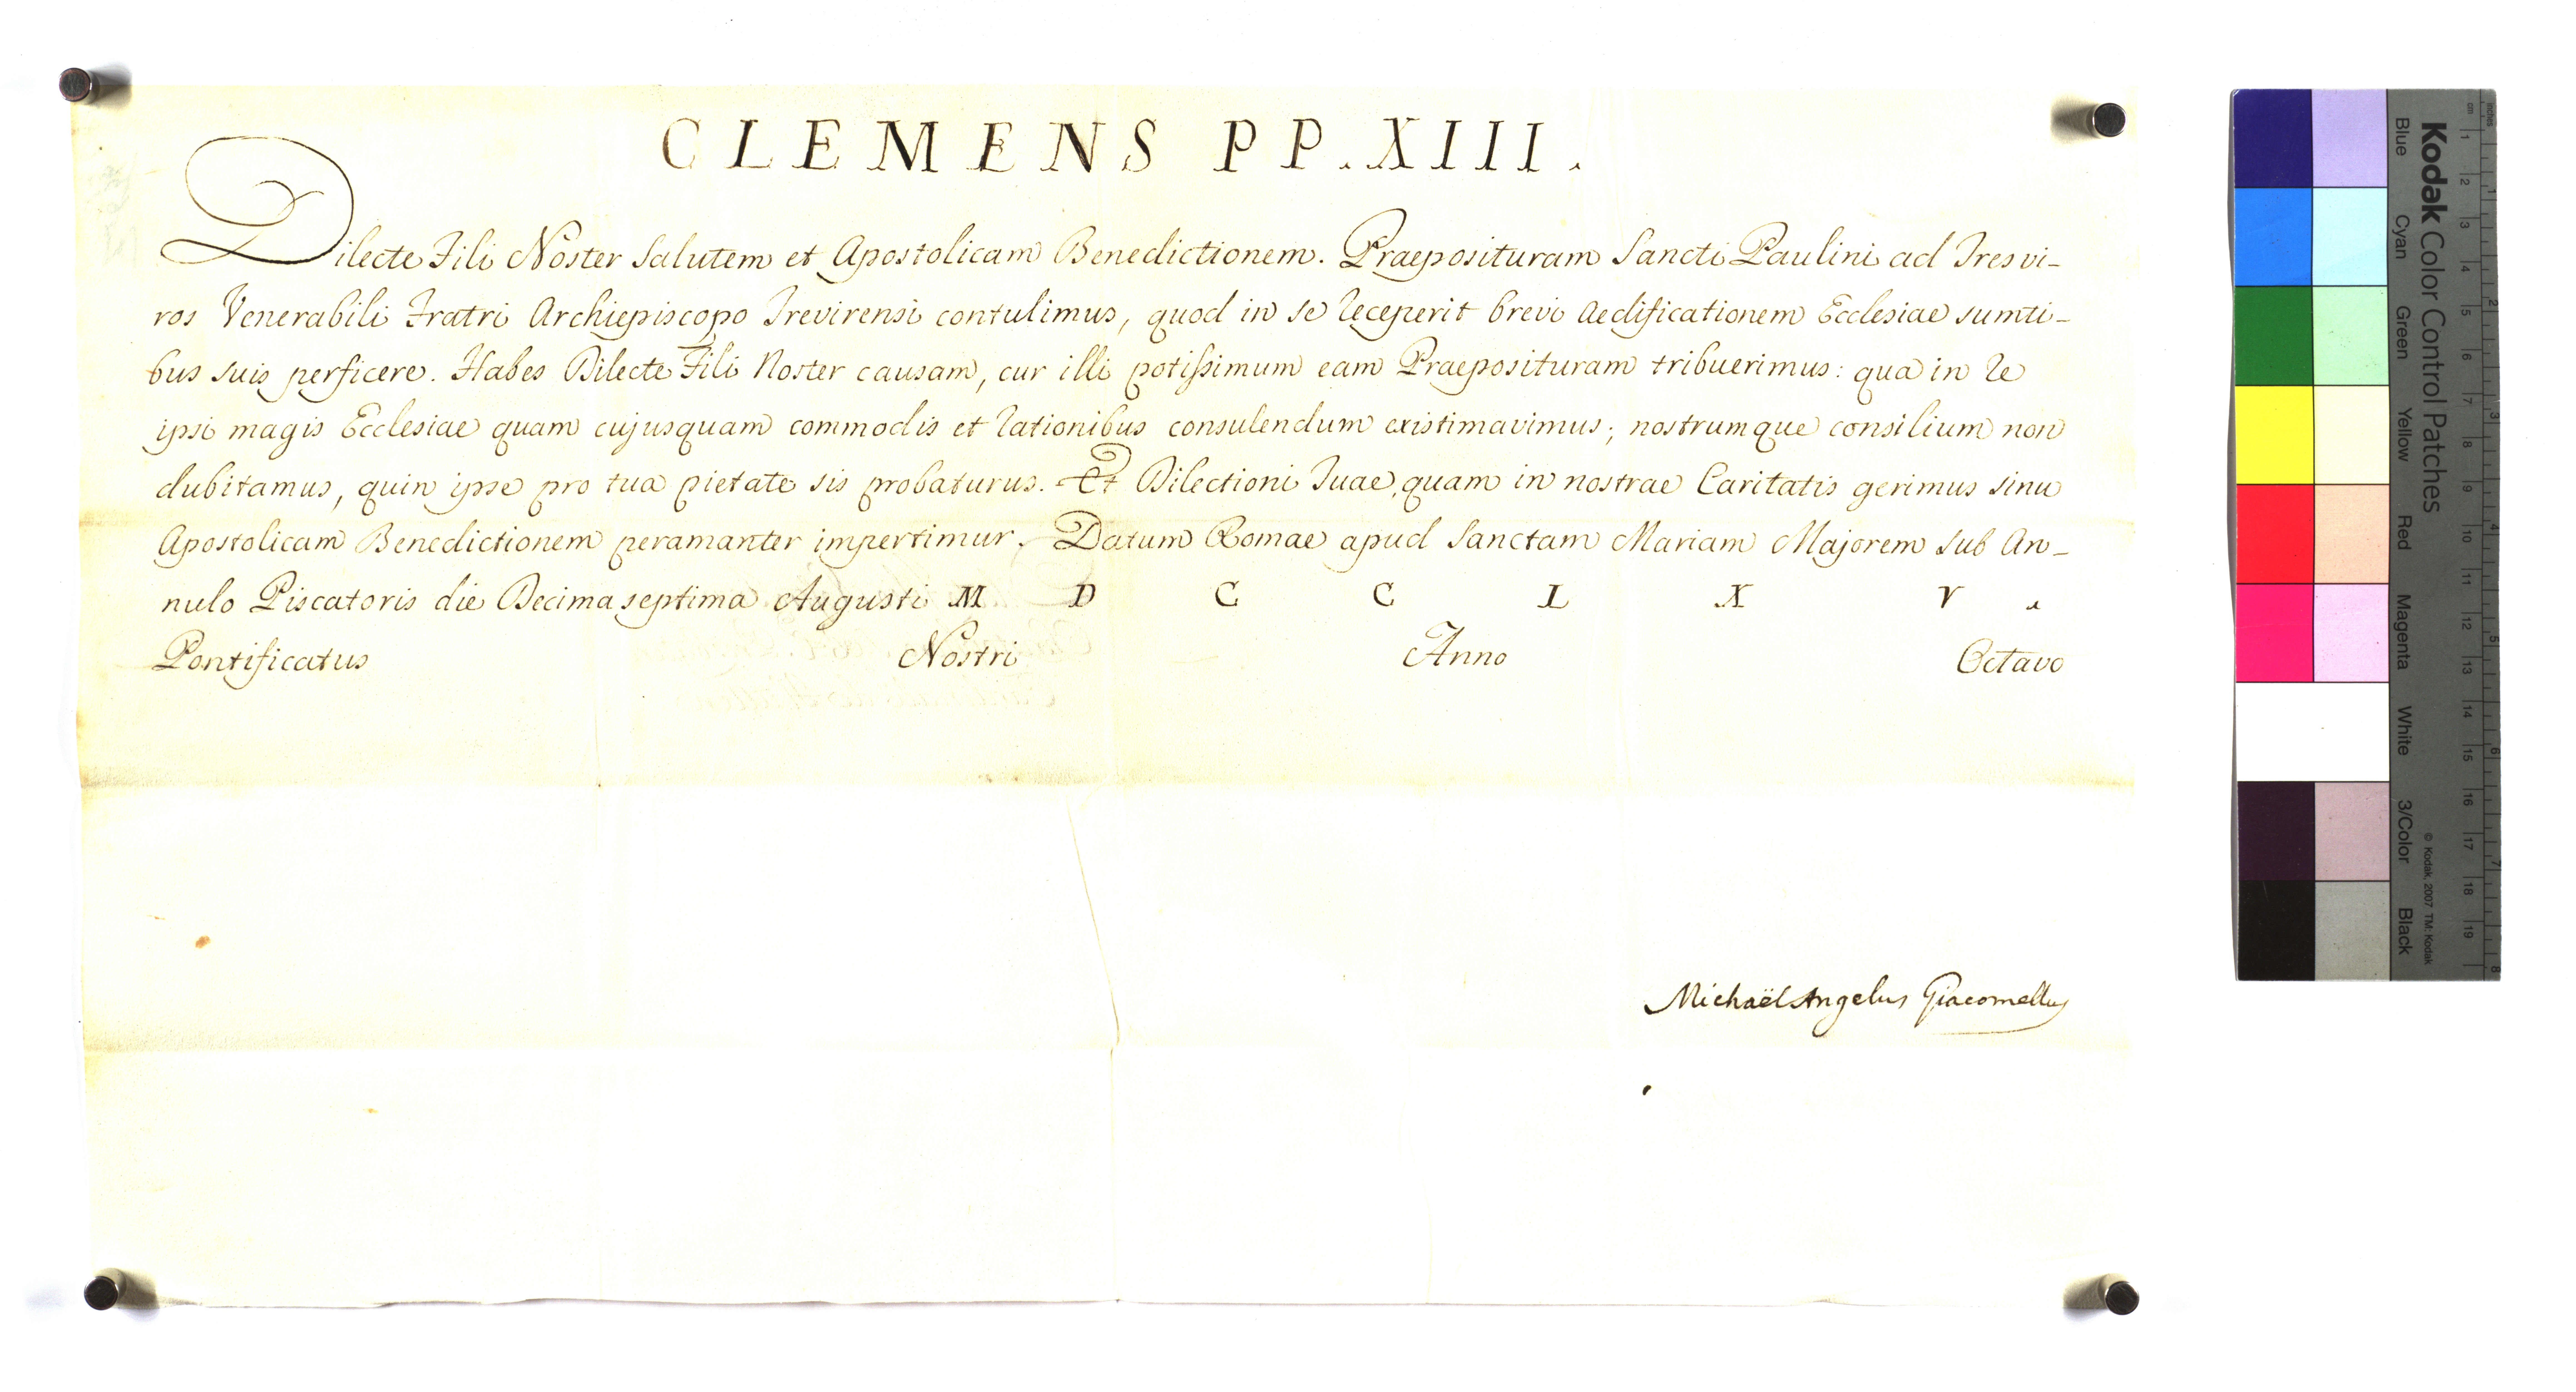 CLEMENS PP. XIII.
Dilecte Fili Noster Salutem et Apostolicam Benedictionem. Praeposituram Sancti Paulini ad Tresvi-
ros Venerabili Fratri Archiepiscopo Trevirensi contulimus, quod in se receperit brevi aedificationem Ecclesiae sumti-
bus suis perficere. Habes Dilecte Fili Noster causam, cur illi potissimum eam Praeposituram tribuerimus: qua in re
ipsi magis Ecclesiae quam cujusquam commodis et rationibus consulendum existimavimus; nostrumque consilium non
dubitamus, quin ipse pro tua pietate sis probaturus. Et Dilectioni Tuae, quam in nostrae Caritatis gerimus sinu
Apostolicam Benedictionem peramanter impertimur. Datum Romae apud Sanctam Mariam Majorem sub An-
nulo Piscatoris die Decimaseptima Augusti M D C C L X V .
Pontificatus Nostri Anno Octavo
Michaël Angelus Giacomellus
Kodak Color Control Patches
Blue Cyan Green Yellow Red Magenta White 3/Color Black
© Kodak, 2007 TM: Kodak
cm 1 2 3 4 5 6 7 8 9 10 11 12 13 14 15 16 17 18 19
inches 1 2 3 4 5 6 7 8